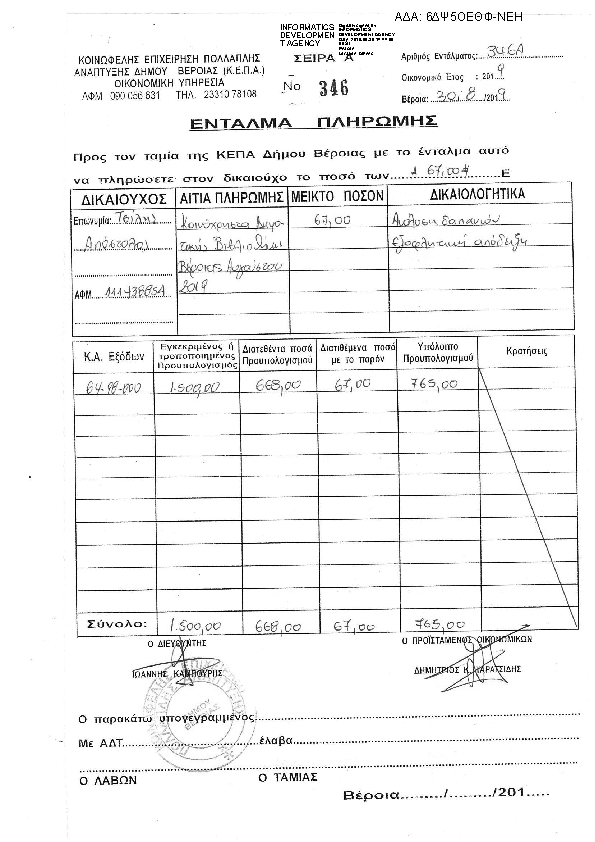 ΑΔΑ: 6ΔΨ5ΟΕΘΦ-ΝΕΗ
INFORMATICS
DEVELOPMEN
T AGENCY
ΚΟΙΝΩΦΕΛΗΣ ΕΠΙΧΕΙΡΗΣΗ ΠΟΛΛΑΠΛΗΣ
ΑΝΑΠΤΥΞΗΣ ΔΗΜΟΥ ΒΕΡΟΙΑΣ (Κ.Ε.Π.Α.)
ΟΙΚΟΝΟΜΙΚΗ ΥΠΗΡΕΣΙΑ
ΑΦΜ 090 056 631 ΤΗΛ. 23310 78108
ΣΕΙΡΑ Α΄
Νο 346
Αριθμός Εντάλματος: 346Α
Οικονομικό Έτος : 2019
Βέροια: 30/8/2019
ΕΝΤΑΛΜΑ ΠΛΗΡΩΜΗΣ
Προς τον ταμία της ΚΕΠΑ Δήμου Βέροιας με το ένταλμα αυτό
να πληρώσετε στον δικαιούχο το ποσό των 67,00 Ε
ΔΙΚΑΙΟΥΧΟΣ ΑΙΤΙΑ ΠΛΗΡΩΜΗΣ ΜΕΙΚΤΟ ΠΟΣΟΝ ΔΙΚΑΙΟΛΟΓΗΤΙΚΑ
Επωνυμία: Τσίλης Κοινόχρηστα Δημο 67,00 Ανάλυση δαπανών
Απόστολος τικής Βιβλιοθήκης Εξοφλητική απόδειξη
Βέροιας Αυγούστου
ΑΦΜ 2019
Κ.Α. Εξόδων Εγκεκριμένος ή τροποποιημένος Προυπολογισμός Διατεθέντα ποσά Προυπολογισμού Διατιθέμενα ποσά με το παρόν Υπόλοιπο Προυπολογισμού Κρατήσεις
64.98-000 1.500,00 668,00 67,00 765,00
Σύνολο: 1.500,00 668,00 67,00 765,00
Ο ΔΙΕΥΘΥΝΤΗΣ Ο ΠΡΟΪΣΤΑΜΕΝΟΣ ΟΙΚΟΝΟΜΙΚΩΝ
ΙΩΑΝΝΗΣ ΚΑΜΠΟΥΡΗΣ ΔΗΜΗΤΡΙΟΣ Κ.
ΔΗΜΟΥ
ΒΕΡΟΙΑΣ
Ο παρακάτω υπογεγραμμένος
Με ΑΔΤ έλαβα
Ο ΛΑΒΩΝ Ο ΤΑΜΙΑΣ
Βέροια........./........./201.....